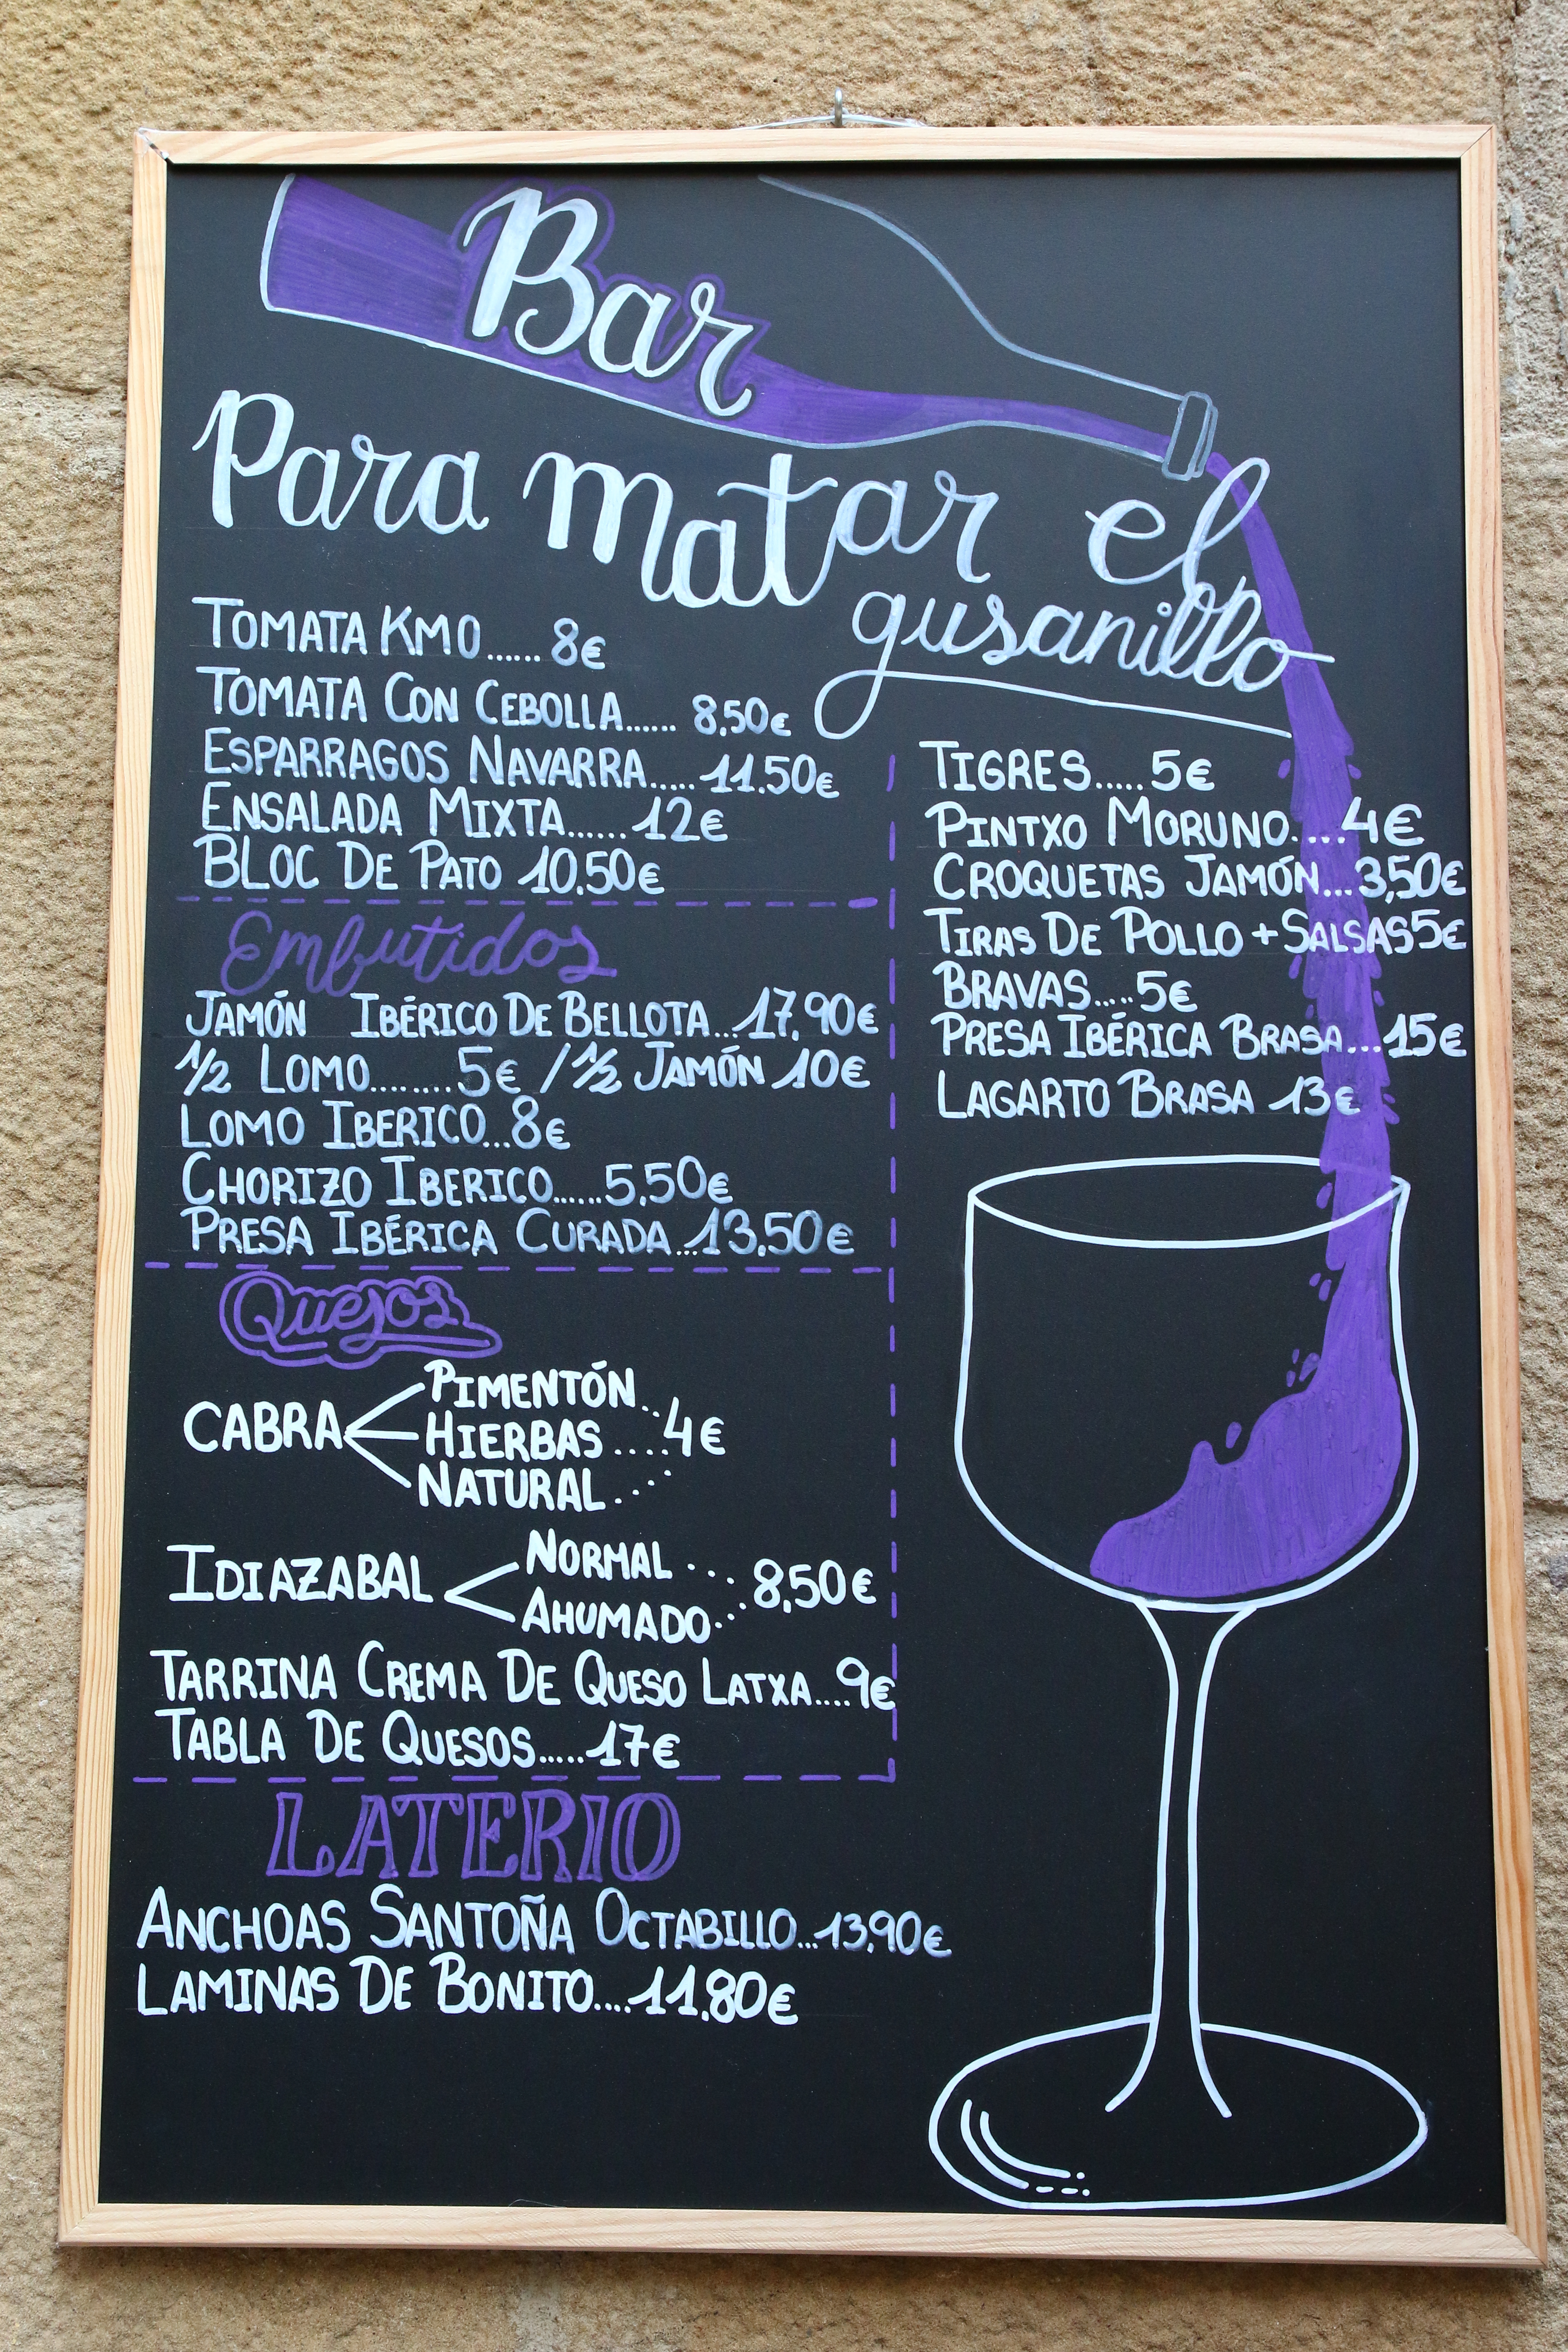 Bar
Para matar el
gusanillo
TOMATA KM0...... 8€
TOMATA CON CEBOLLA...... 8,50€
ESPARRAGOS NAVARRA..... 11.50€
ENSALADA MIXTA...... 12€
BLOC DE PATO 10,50€
Embutidos
JAMÓN IBÉRICO DE BELLOTA...17,90€
1/2 LOMO........5€ / 1/2 JAMÓN 10€
LOMO IBERICO...8€
CHORIZO IBERICO......5,50€
PRESA IBÉRICA CURADA...13,50€
Quesos
CABRA
PIMENTÓN..
HIERBAS....4€
NATURAL....
IDIAZABAL
NORMAL....
8,50€
AHUMADO....
TARRINA CREMA DE QUESO LATXA....9€
TABLA DE QUESOS.....17€
LATERIO
ANCHOAS SANTOÑA OCTABILLO...13,90€
LAMINAS DE BONITO....11,80€
TIGRES.....5€
PINTXO MORUNO....4€
CROQUETAS JAMÓN...3,50€
TIRAS DE POLLO + SALSAS 5€
BRAVAS....5€
PRESA IBÉRICA BRASA...15€
LAGARTO BRASA 13€